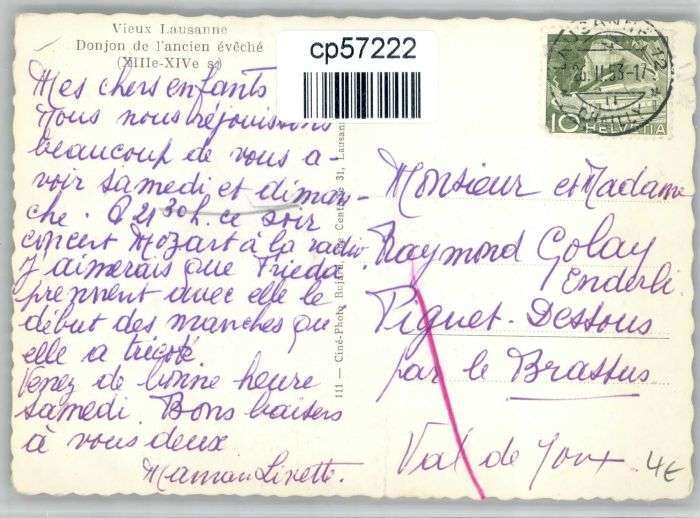 Vieux Lausanne
Donjon de l'ancien évêché
(XIIIe-XIVe s.)
cp57222
Mes chers enfants
Nous nous réjouissons
beaucoup de vous a-
voir samedi et diman-
che. A 21 30 h. ce soir
concert Mozart à la radio.
J'aimerais que Frieda
prennent avec elle le
début des manches qu'
elle a tricoté
Venez de bonne heure
samedi. Bons baisers
à vous deux
Maman Linette.
111 — Ciné-Photo Bujard, Centrale 31, Lausanne
HELVETIA
10
LAUSANNE 12
II.53-17
CHAILLY
Monsieur et Madame
Raymond Golay
Enderli
Piguet-Dessous
par le Brassus
Val de Joux
4€